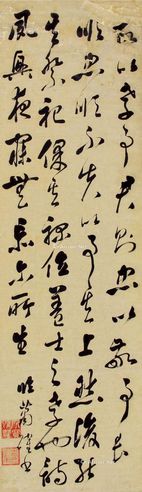 故以孝事君則忠以敬事長
順忠順不失以事其上然後能
其祭祀保其祿位蓋士之孝也詩
夙興夜寐無忝爾所生